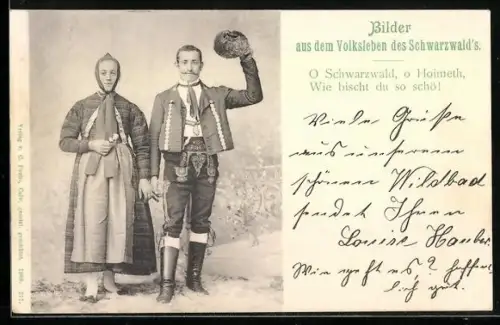 Bilder
aus dem Volksleben des Schwarzwald's.
O Schwarzwald, o Hoimeth,
Wie bischt du so schö!
Viele Grüße
aus unserem
schönen Wildbad
sendet Ihnen
Louise Hauber.
Wie geht es? hoffent
lich gut.
Verlag v. C. Fuchs, Calw, gesetzl. geschützt. 1898.